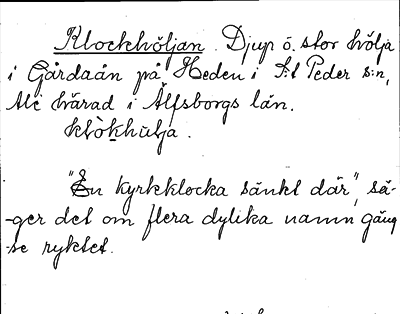 Klockhöljan. Djup o. stor hölja
i Gårdaån på Heden i S:t Peder s:n,
Ale härad i Älfsborgs län.
klòkhulja.
"En kyrkklocka sänkt där", sä-
-ger det om flera dylika namn gäng
-se ryktet.